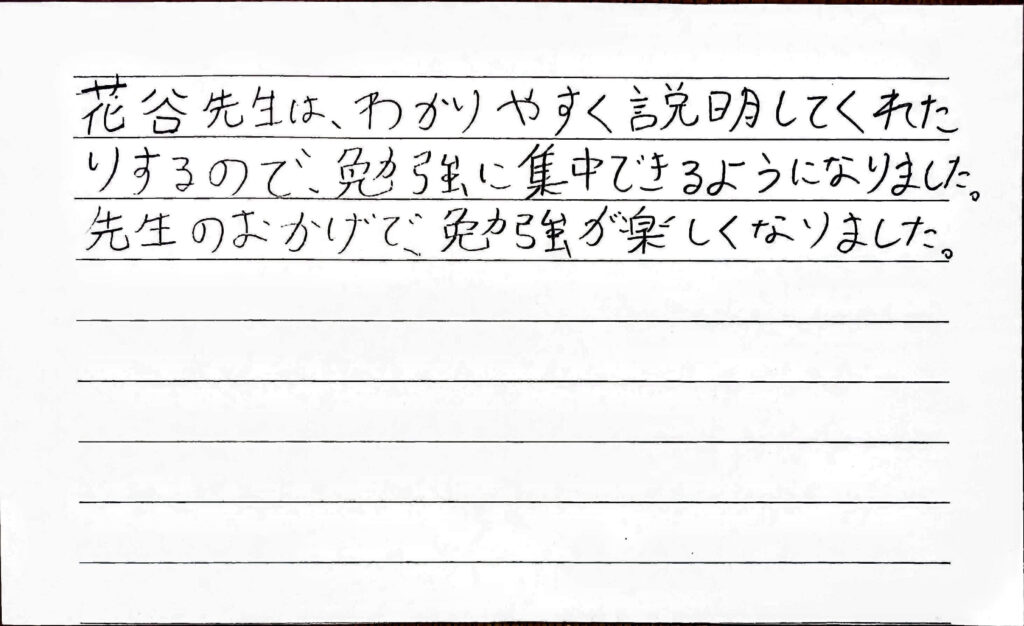 花谷先生は、わかりやすく説明してくれた
りするので、勉強に集中できるようになりました。
先生のおかげで、勉強が楽しくなりました。